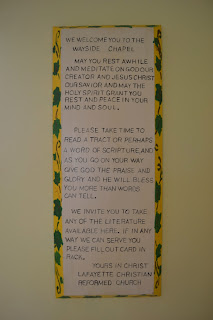 WE WELCOME YOU TO THE
WAYSIDE CHAPEL
MAY YOU REST AWHILE
AND MEDITATE ON GOD OUR
CREATOR AND JESUS CHRIST
OUR SAVIOR AND MAY THE
HOLY SPIRIT GRANT YOU
REST AND PEACE IN YOUR
MIND AND SOUL.
PLEASE TAKE TIME TO
READ A TRACT OR PERHAPS
A WORD OF SCRIPTURE AND
AS YOU GO ON YOUR WAY
GIVE GOD THE PRAISE AND
GLORY AND HE WILL BLESS
YOU MORE THAN WORDS
CAN TELL.
WE INVITE YOU TO TAKE
ANY OF THE LITERATURE
AVAILABLE HERE. IF IN ANY
WAY WE CAN SERVE YOU
PLEASE FILL OUT CARD IN
RACK.
YOURS IN CHRIST
LAFAYETTE CHRISTIAN
REFORMED CHURCH